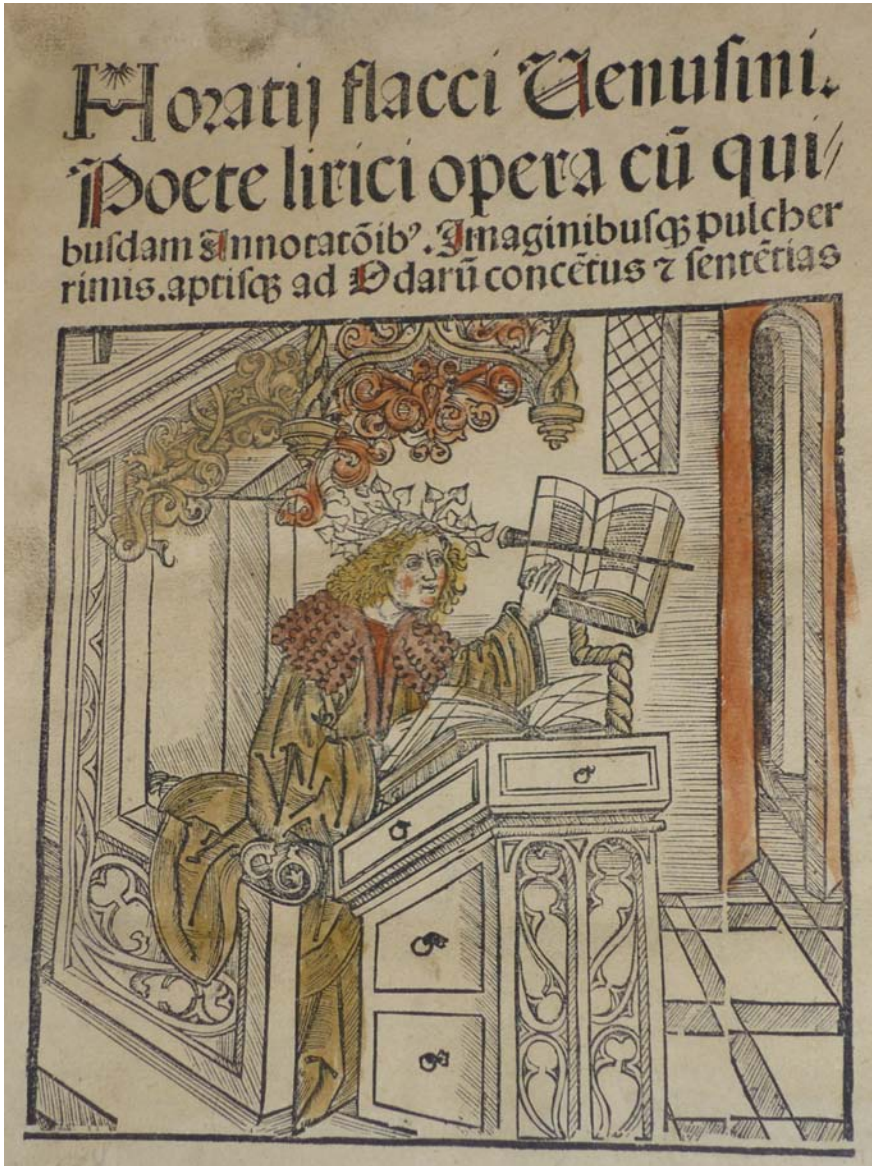 Horatij flacci Uenusini.
Poete lirici opera cū qui/
busdam Annotatōib⁹. Imaginibusqꝫ pulcher
rimis. aptisqꝫ ad Odarū concētus ⁊ sentētias